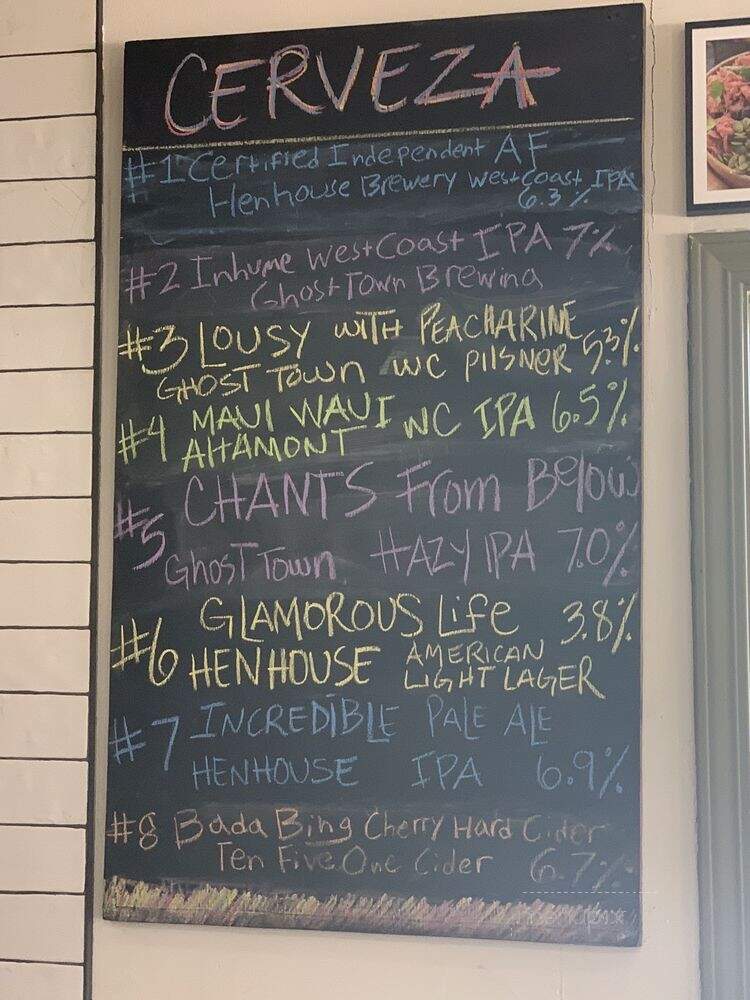 CERVEZA
#1 Certified Independent AF
Henhouse Brewery West Coast IPA
6.3%
#2 Inhume West Coast IPA 7%
Ghost Town Brewing
#3 LOUSY WITH PEACHARINE
GHOST TOWN WC PILSNER 5.3%
#4 MAUI WAUI WC IPA 6.5%
AlTAMONT
#5 CHANTS From Below
Ghost Town HAZY IPA 7.0%
#6 GLAMOROUS Life 3.8%
HENHOUSE AMERICAN
LIGHT LAGER
#7 INCREDIBLE PALE ALE
HENHOUSE IPA 6.9%
#8 Bada Bing Cherry Hard Cider
Ten Five One Cider 6.7%